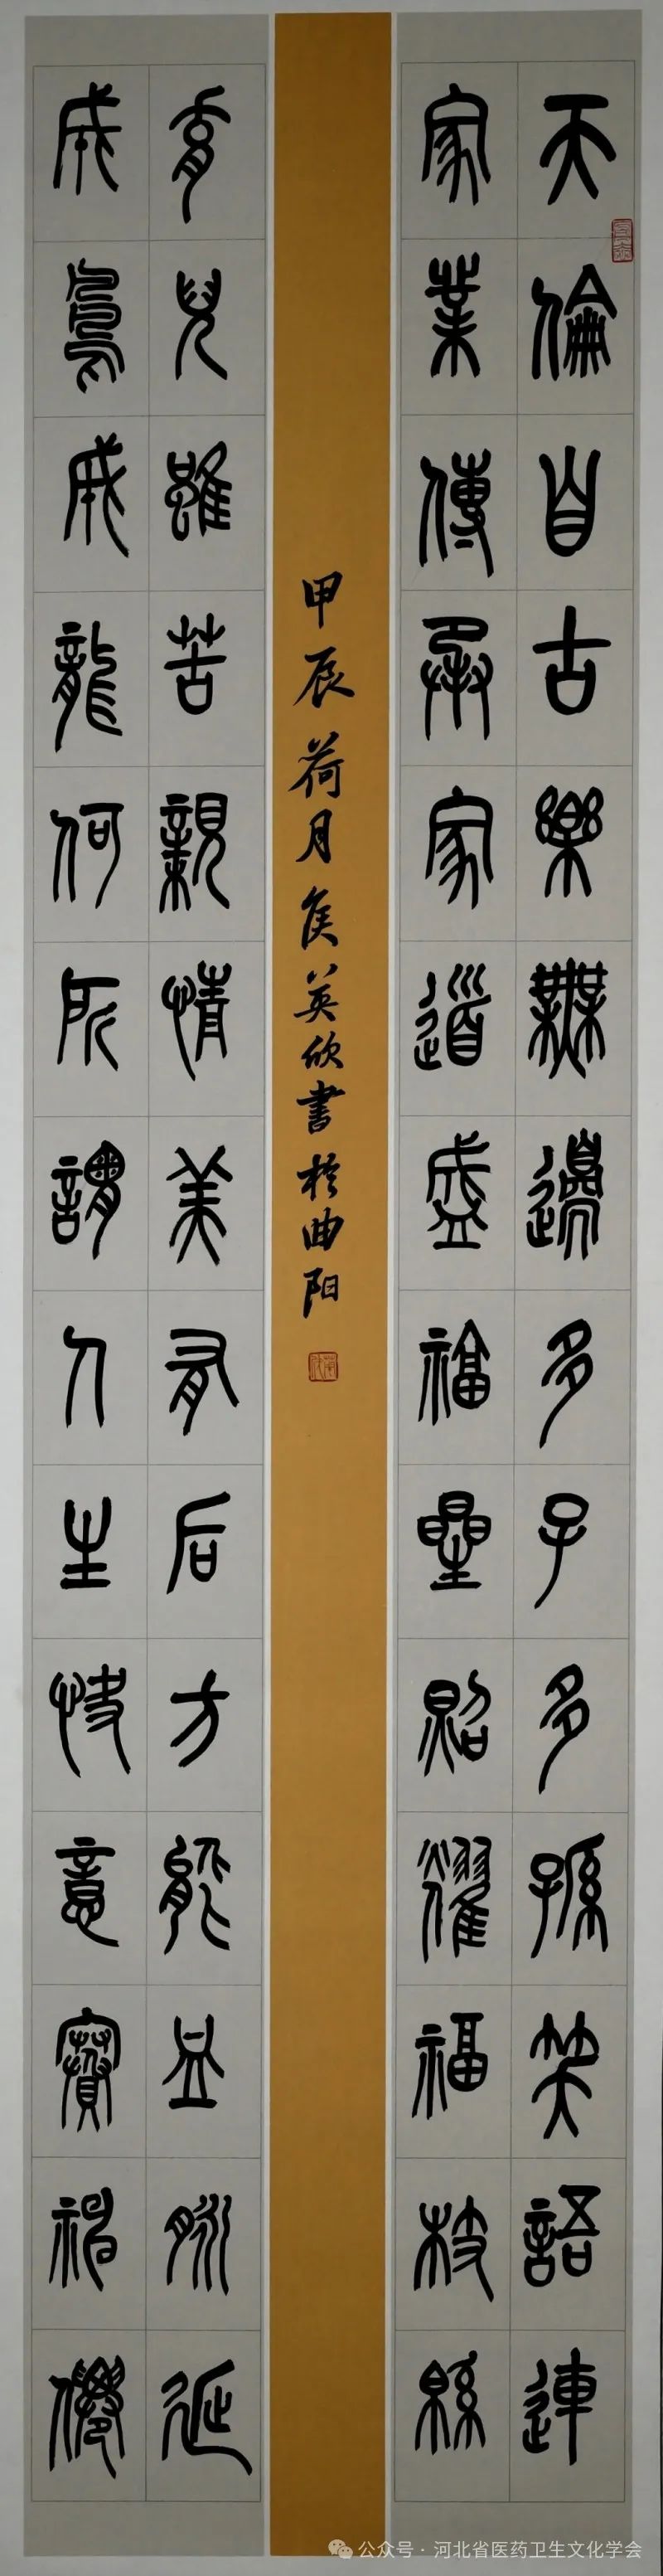 天倫自古樂無邊多子多孫笑語連
家業傳承家道盛福星照耀福枝綿
育兒雖苦親情美有后方能血脉延
成鳳成龍何所謂人生快意賽神僊
甲辰荷月侯英欣書於曲阳
公众号 · 河北省医药卫生文化学会